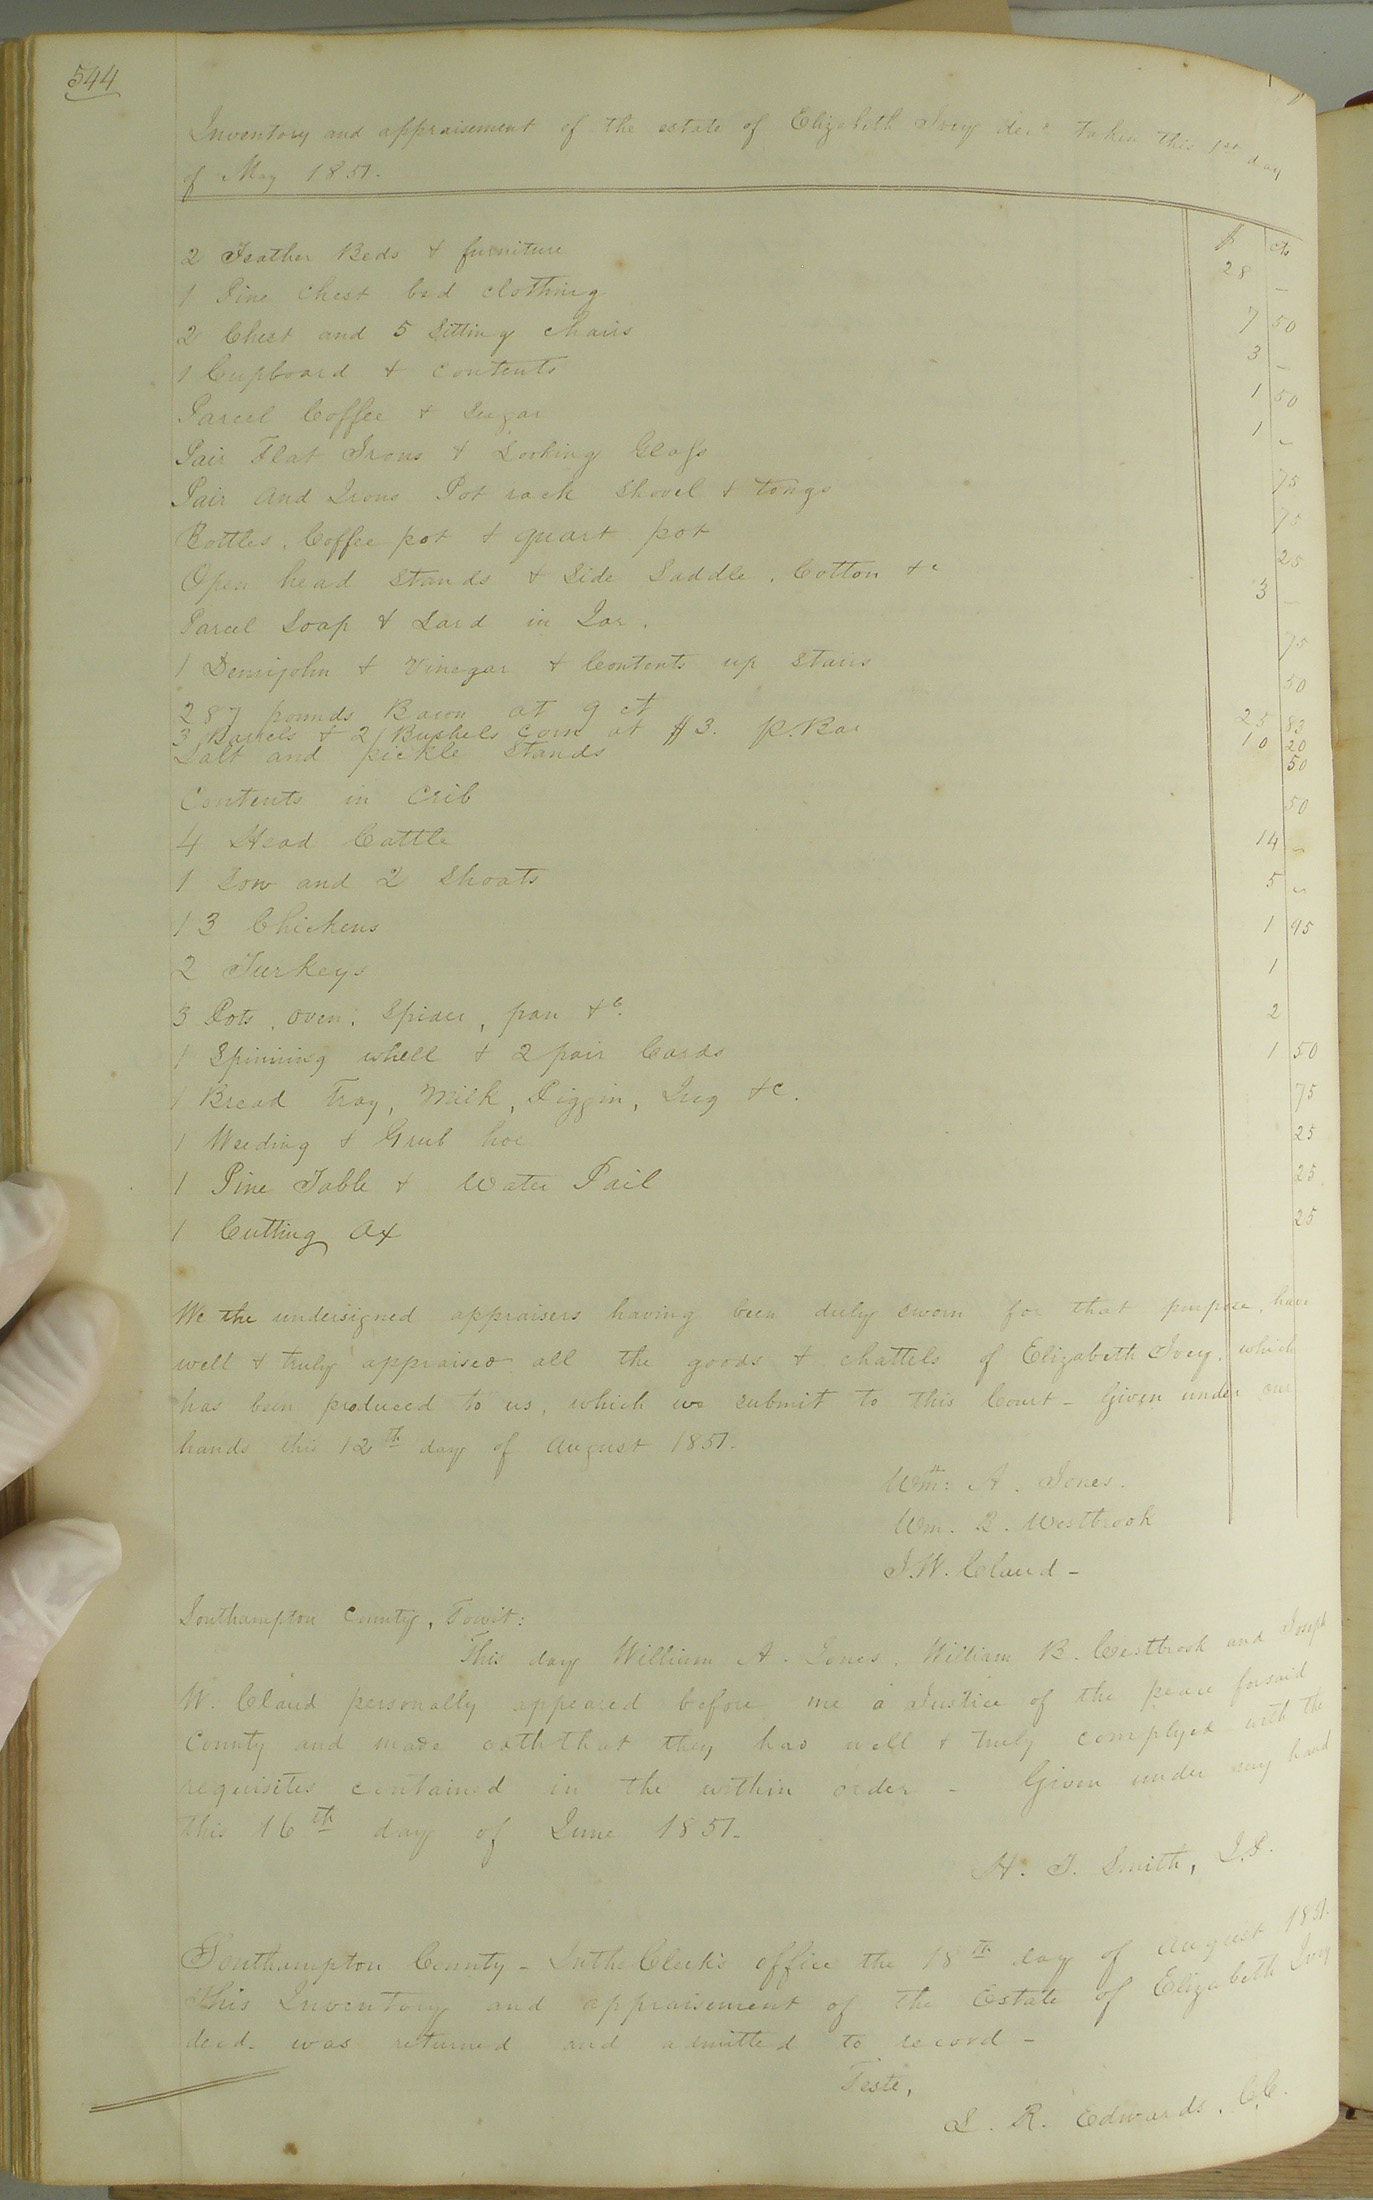 544
Inventory and appraisement of the estate of Elizabeth Ivey decd taken this 1st day
of May 1851.
$ cts
2 Feather Beds & furniture 28 –
1 Pine chest bed clothing 7 50
2 Chest and 5 Sitting chairs 3 –
1 Cupboard & contents 1 50
Parcel Coffee & Sugar 1 –
Pair Flat Irons & Looking Glass 75
Pair And Irons Pot rack shovel & tongs 75
Bottles, Coffee pot & quart pot 25
Open head stands & Side Saddle, Cotton &c 3 –
Parcel Soap & Lard in Jar. 75
1 Demijohn & Vinegar & Contents up stairs 50
287 pounds Bacon at 9 ct 25 83
3 Barrels & 2 Bushels corn at $3. p. Bar 10 20
Salt and pickle stands 50
Contents in crib 50
4 Head Cattle 14 –
1 Sow and 2 Shoats 5 –
13 Chickens 1 95
2 Turkeys 1
3 Pots, oven, Spider, pan &c. 2
1 Spinning whell & 2 pair Cards 1 50
1 Bread Tray, Milk, Piggin, Jug &c. 75
1 Weeding & Grub hoe 25
1 Pine Table & Water Pail 25
1 Cutting Ax 25
We the undersigned appraisers having been duly sworn for that purpose, have
well & truly appraised all the goods & chattels of Elizabeth Ivey, which
has been produced to us, which we submit to this Court – Given under our
hands this 12th day of August 1851.
Wm: A. Jones.
Wm. B. Westbrook
J. W. Claud –
Southampton County, Towit:
This day William A. Jones, William B. Westbrook and Joseph
W. Claud personally appeared before me a Justice of the peace forsaid
County and made oath that they had well & truly complyed with the
requisites contained in the within order – Given under my hand
this 16th day of June 1851.
H. T. Smith, J.P.
Southampton County – In the Clerk's office the 18th day of August 1851.
This Inventory and appraisement of the Estate of Elizabeth Ivey
decd. was returned and admitted to record –
Teste,
L. R. Edwards, C.C.